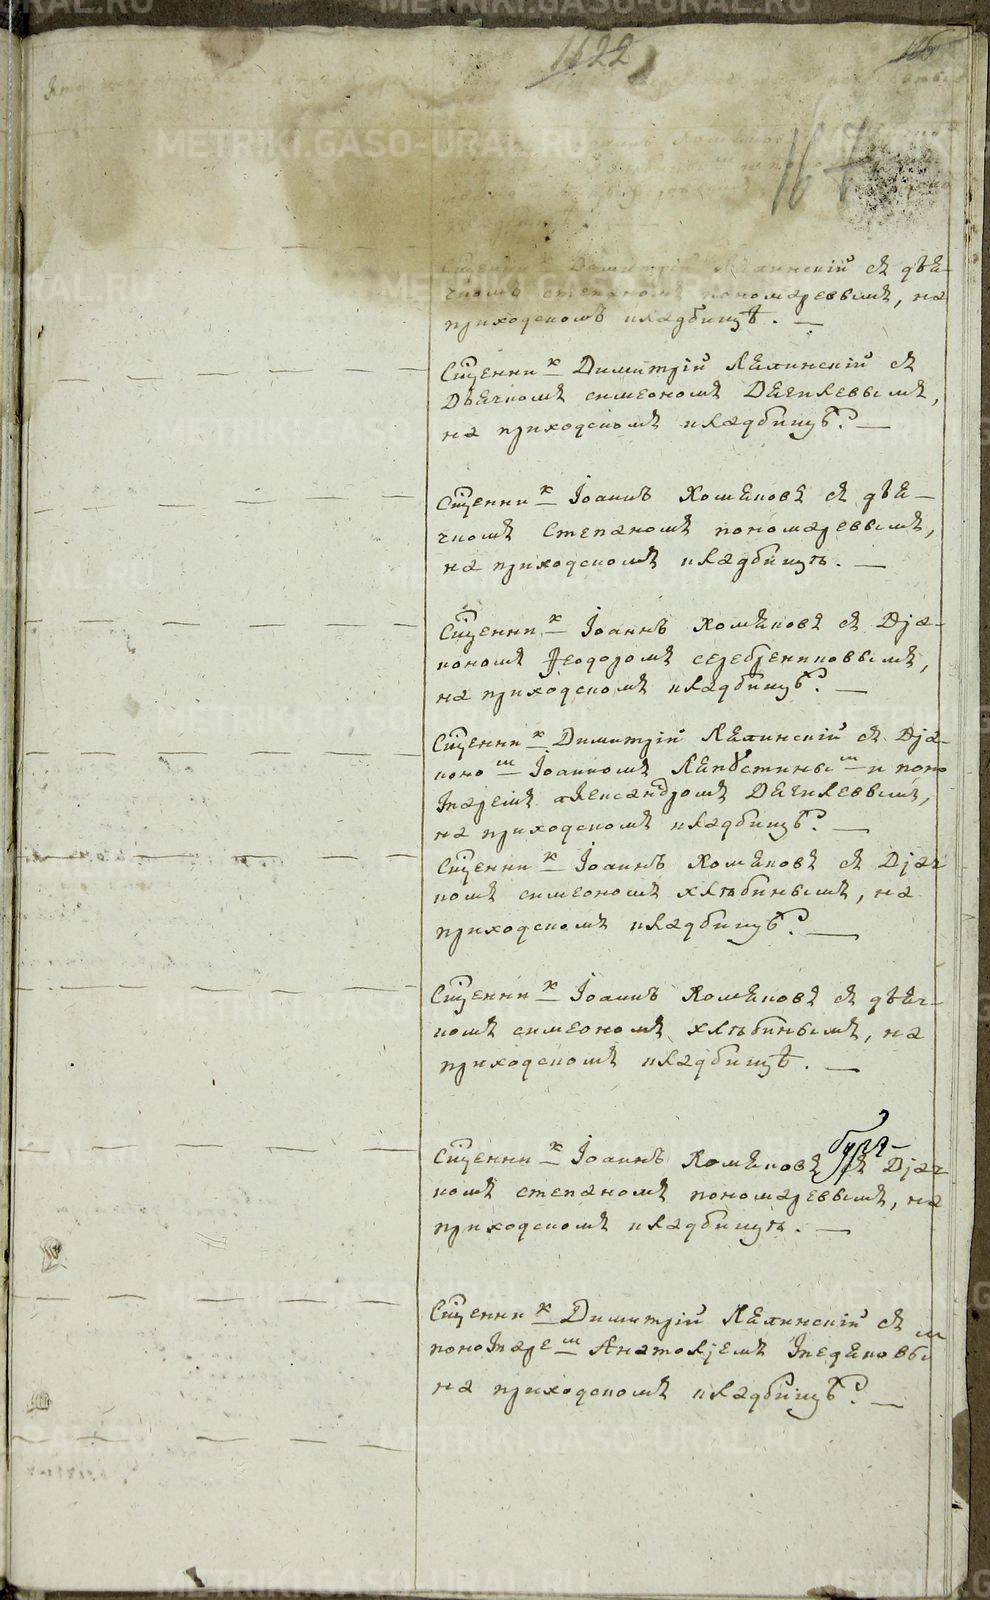 1622
167
Сщенникъ Димитрій Ляпинскій съ дья-
чкомъ степаномъ пономаревымъ, на
приходскомъ кладбищѣ.
Сщенникъ Димитрій Ляпинскій съ
Дьячкомъ симеономъ Дягилевымъ,
на приходскомъ кладбищѣ.
Сщенникъ Іоаннъ Хомяковъ съ дья-
чкомъ Степаномъ пономаревымъ,
на приходскомъ кладбищѣ.
Сщенникъ Іоаннъ Хомяковъ съ Діа-
кономъ Ѳеодоромъ серебренниковымъ,
на приходскомъ кладбищѣ.
Сщенникъ Димитрій Ляпинскій съ Діа-
кономъ Іоанномъ Капустинымъ и поно
маремъ Александромъ Дягилевымъ,
на приходскомъ кладбищѣ.
Сщенникъ Іоаннъ Хомяковъ съ Дьяч
комъ симеономъ хлѣбинымъ, на
приходскомъ кладбищѣ.
Сщенникъ Іоаннъ Хомяковъ съ дьяч-
комъ симеономъ хлѣбинымъ, на
приходскомъ кладбищѣ.
Сщенникъ Іоаннъ Хомяковъ съ Дьяч
комъ степаномъ пономаревымъ, на
приходскомъ кладбищѣ.
Сщенникъ Димитрій Ляпинскій съ
пономаремъ Анатоліемъ
на приходскомъ кладбищѣ.
METRIKI.GASO-URAL.RU